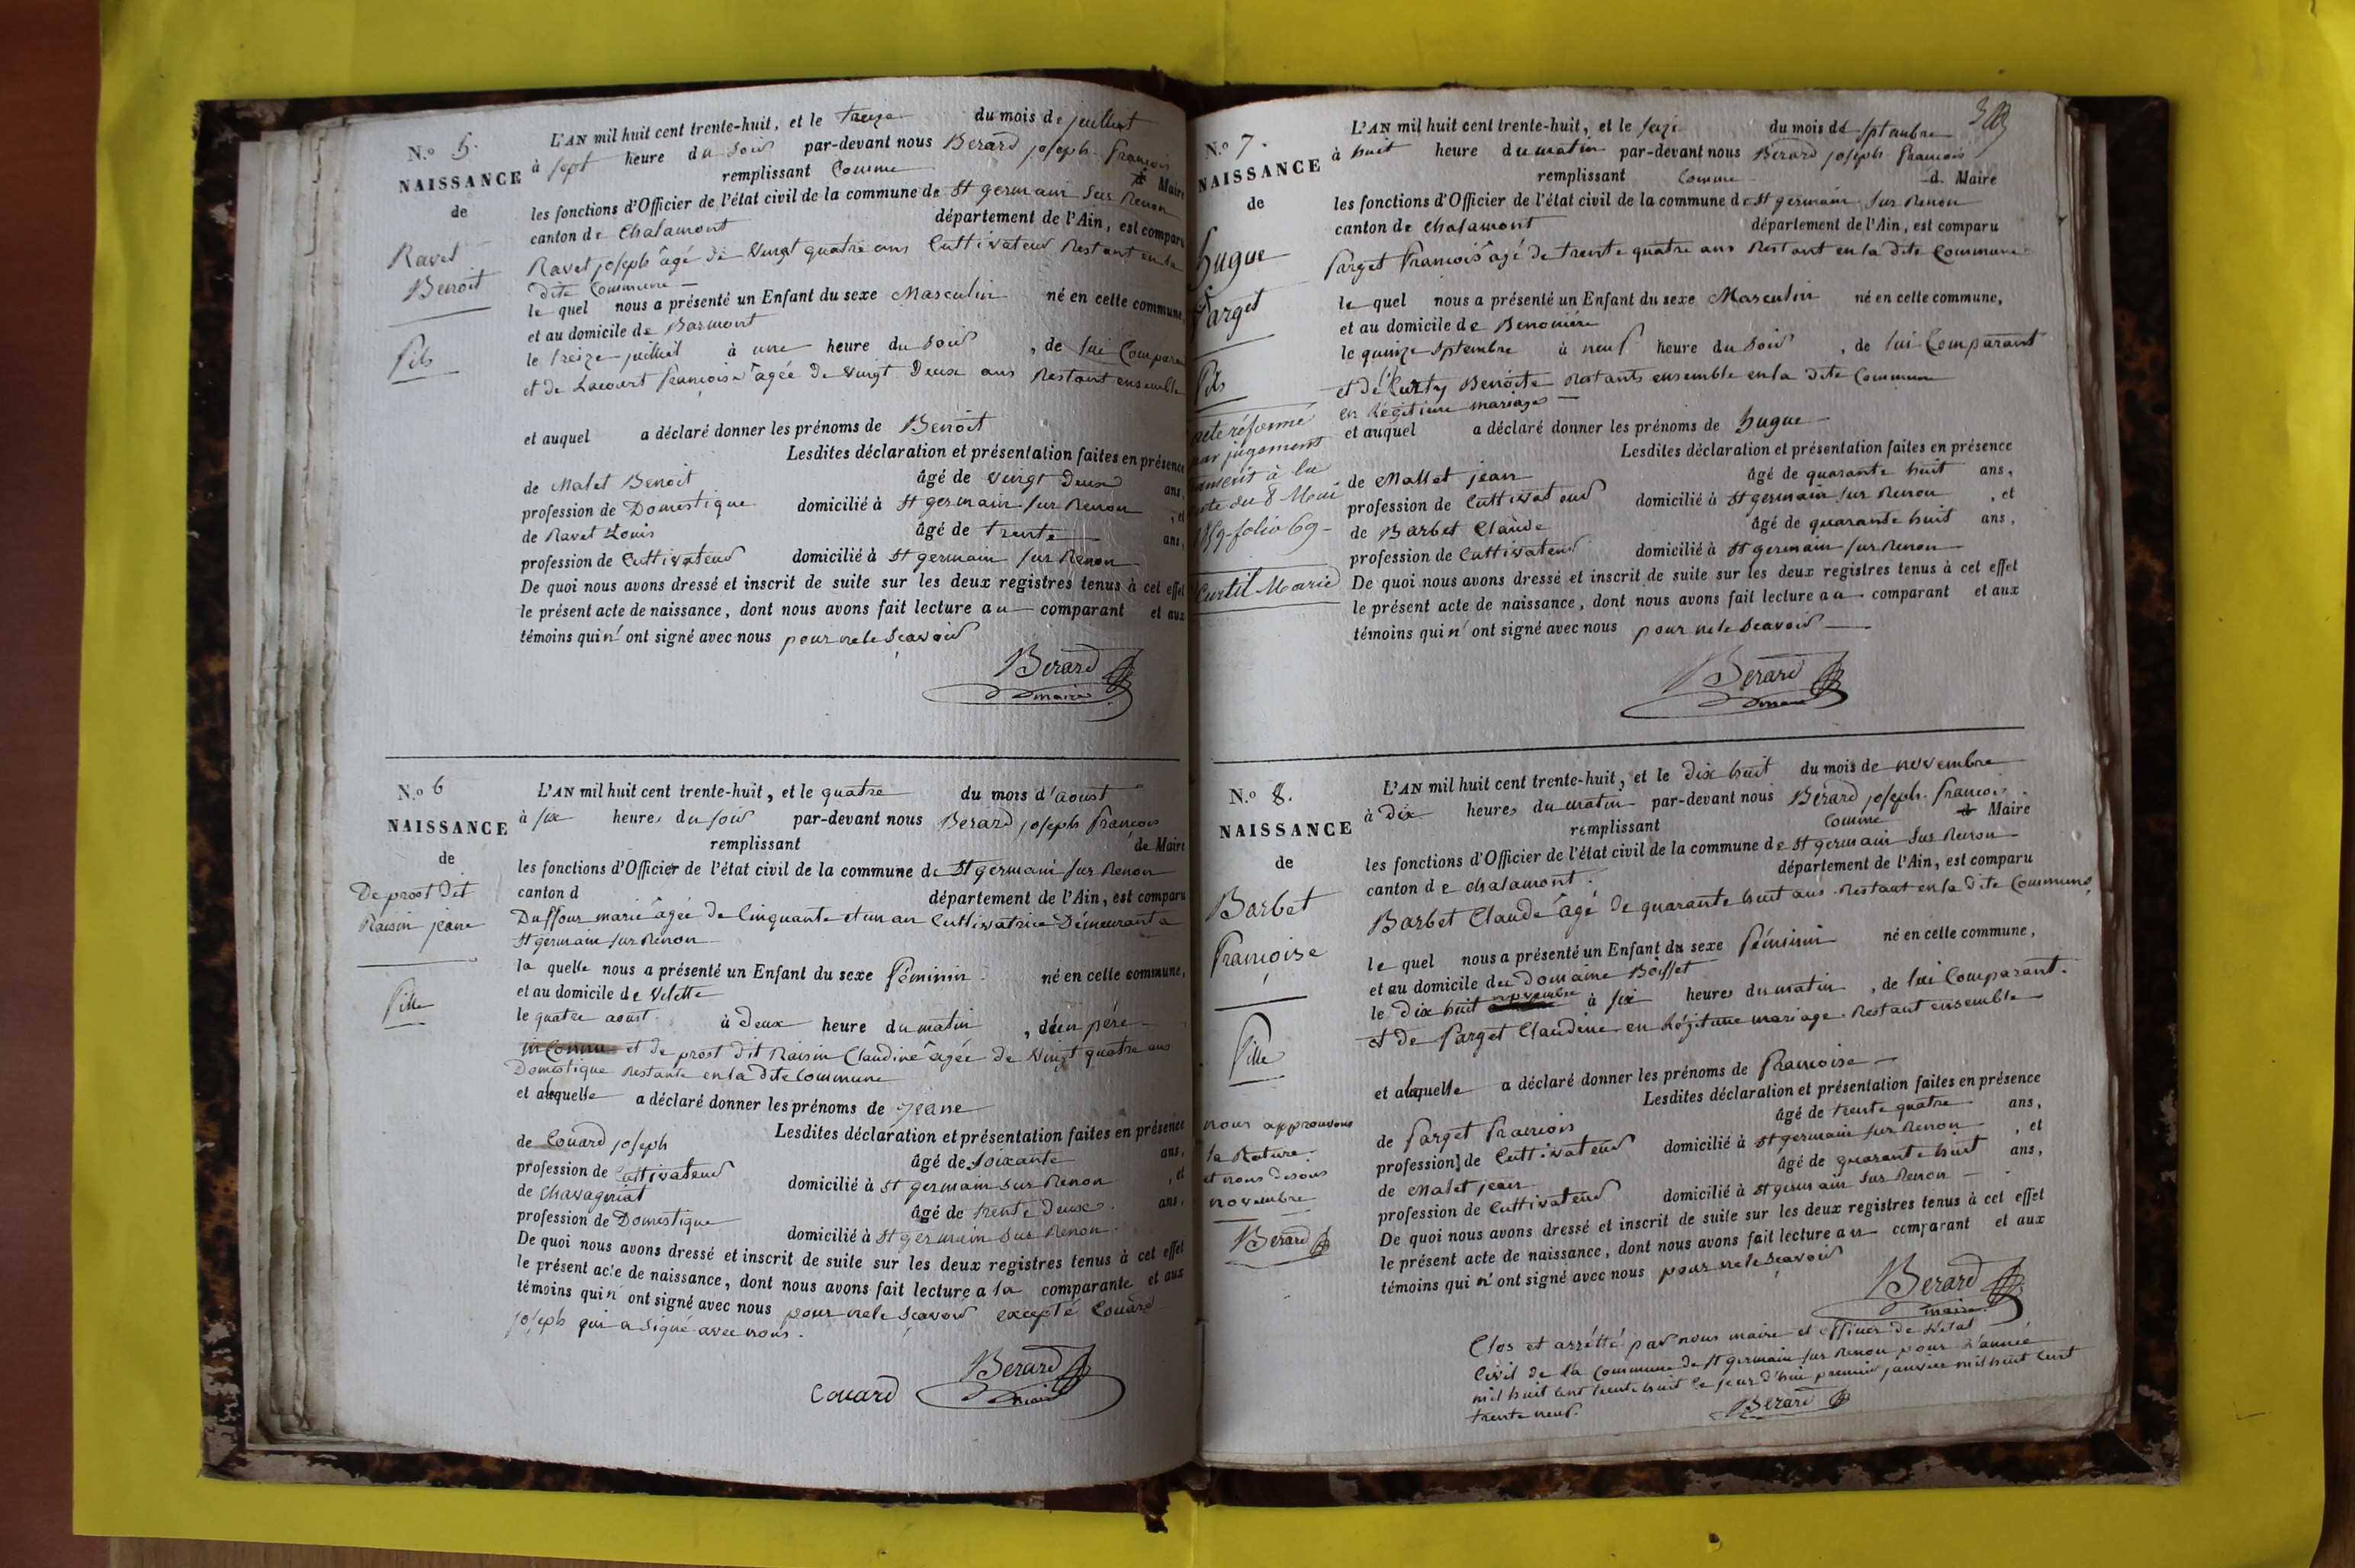 N.o 5.
NAISSANCE
de
Ravet
Benoit
fils
L'AN mil huit cent trente-huit, et le treize du mois de juilliet
à sept heure du soir par-devant nous Berard joseph françois
remplissant Comme Maire
les fonctions d'Officier de l'état civil de la commune de St germain sur Renon
canton de Chalamont département de l'Ain, est comparu
Ravet joseph âgé de vingt quatre ans Cultivateur Restant en la
dite Commune
le quel nous a présenté un Enfant du sexe Masculin né en celle commune,
et au domicile de Barmont
le treize juilliet à une heure du soir, de lui Comparant
et de Lacourt françoise âgée de vingt Deux ans Restant ensemble
et auquel a déclaré donner les prénoms de Benoit
Lesdites déclaration et présentation faites en présence
de Malet Benoit âgé de vingt Deux ans,
profession de Domestique domicilié à St germain sur Renon, et
de Ravet Louis âgé de trente ans,
profession de Cultivateur domicilié à St germain sur Renon
De quoi nous avons dressé et inscrit de suite sur les deux registres tenus à cet effet
le présent acte de naissance, dont nous avons fait lecture au comparant et aux
témoins qui n'ont signé avec nous pour ne le Sçavoir
Berard
maire
N.o 6
NAISSANCE
de
De prost dit
Raisin jeane
fille
L'AN mil huit cent trente-huit, et le quatre du mois d'aoust
à six heures du soir par-devant nous Berard joseph françois
remplissant de Maire
les fonctions d'Officier de l'état civil de la commune de St germain sur Renon
canton d département de l'Ain, est comparu
Duffour marie âgée de Cinquante et un an Cultivatrice Démeurant a
St germain sur Renon
la quelle nous a présenté un Enfant du sexe féminin né en celle commune,
et au domicile de Vilette
le quatre aoust à deux heure du matin, d'un pére
inConnu et de prost dit Raisin Claudine âgée de Vingt quatre ans
Domestique Restante en la dite Commune
et alaquelle a déclaré donner les prénoms de jeane
Lesdites déclaration et présentation faites en présence
de Couard joseph âgé de Soixante ans,
profession de Cultivateur domicilié à St germain sur Renon, et
de Chavageriat âgé de trente deux ans,
profession de Domestique domicilié à St germain sur Renon
De quoi nous avons dressé et inscrit de suite sur les deux registres tenus à cet effet
le présent acte de naissance, dont nous avons fait lecture a la comparante et aux
témoins qui n'ont signé avec nous pour ne le Sçavoir excepté Couard
joseph qui a signé avec nous.
Couard Berard
maire
N.o 7.
NAISSANCE
de
hugue
farget
fils
acte réformé
par jugement
transcrit à la
date du 8 Mai
1859 folio 69
Curtil Marie
L'AN mil huit cent trente-huit, et le seize du mois de Septembre
à huit heure du matin par-devant nous Berard joseph françois
remplissant Comme d Maire
les fonctions d'Officier de l'état civil de la commune de St germain sur Renon
canton de Chalamont département de l'Ain, est comparu
farget françois âgé de trente quatre ans Restant en la dite Commune
le quel nous a présenté un Enfant du sexe Masculin né en celle commune,
et au domicile de Benonière
le quinze Septembre à neuf heure du soir, de lui Comparant
et de Curty Benoite Restants ensemble en la dite Commune
en légitime mariage
et auquel a déclaré donner les prénoms de hugue
Lesdites déclaration et présentation faites en présence
de Mallet jean âgé de quarante huit ans,
profession de Cultivateur domicilié à St germain sur Renon, et
de Barbet Claude âgé de quarante huit ans,
profession de Cultivateur domicilié à St germain sur Renon
De quoi nous avons dressé et inscrit de suite sur les deux registres tenus à cet effet
le présent acte de naissance, dont nous avons fait lecture au comparant et aux
témoins qui n'ont signé avec nous pour ne le Sçavoir
Berard
maire
N.o 8.
NAISSANCE
de
Barbet
françoise
fille
nous approuvons
la Rature
et nous disons
novembre
Berard
L'AN mil huit cent trente-huit, et le dix huit du mois de novembre
à Dix heures du matin par-devant nous Berard joseph françois
remplissant Comme Maire
les fonctions d'Officier de l'état civil de la commune de St germain sur Renon
canton de chalamont. département de l'Ain, est comparu
Barbet Claude âgé de quarante huit ans Restant en la dite Commune
le quel nous a présenté un Enfant du sexe féminin né en celle commune,
et au domicile du Domaine Boisset
le Dix huit novembre à six heures du matin, de lui Comparant.
et de farget Claudine en légitime mariage Restant ensemble
et alaquelle a déclaré donner les prénoms de françoise
Lesdites déclaration et présentation faites en présence
de farget françois âgé de trente quatre ans,
profession de Cultivateur domicilié à St germain sur Renon, et
de Malet jean âgé de quarante huit ans,
profession de Cultivateur domicilié à St germain sur Renon
De quoi nous avons dressé et inscrit de suite sur les deux registres tenus à cet effet
le présent acte de naissance, dont nous avons fait lecture au comparant et aux
témoins qui n'ont signé avec nous pour ne le Sçavoir
Berard
maire
Clos et arrétté par nous maire et officier de L'état
Civil de la Commune de St germain sur Renon pour L'année
mil huit cent trente huit le jour d'hui premier janvier mil huit cent
trente neuf.
Berard